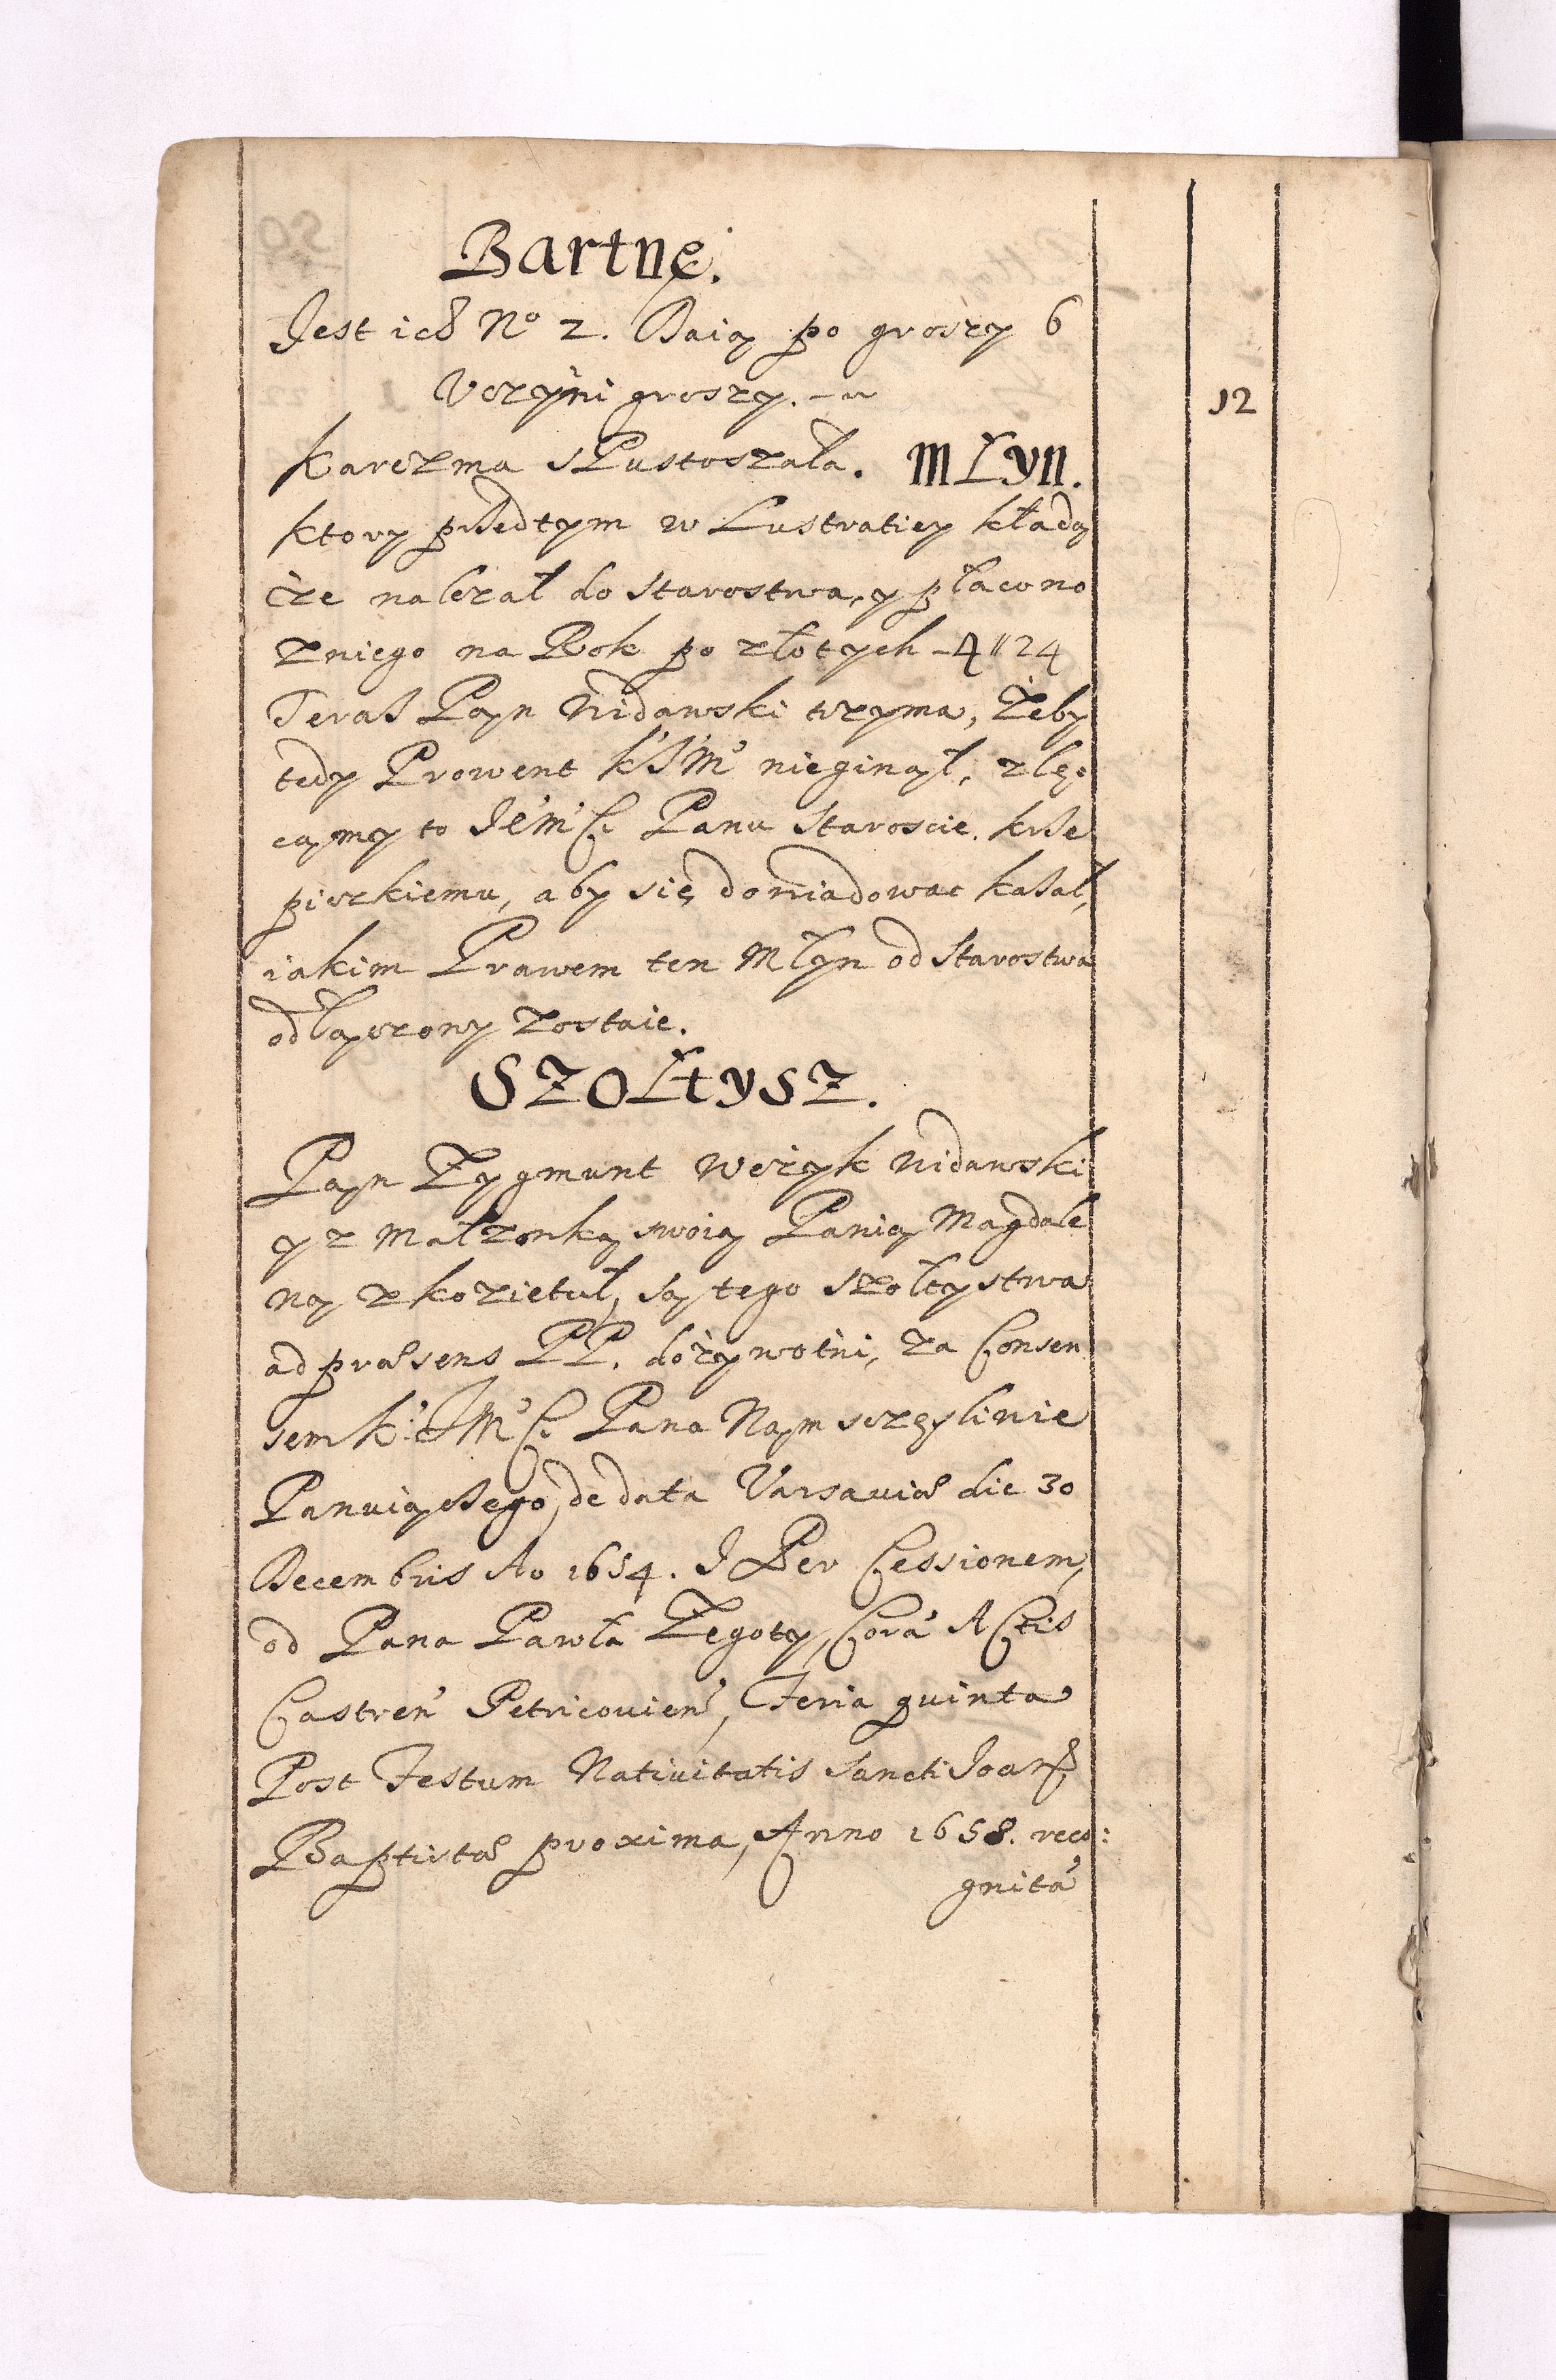 Bartne.
Jest ich No 2. Daią po groszy 6
Uczyni groszy. 12
Karczma sPustoszała. Młyn.
ktory przedtym w Lustratiey kładą
iże należał do Starostwa, y płacono
zniego na Rok po złotych 4 // 24
Teras Pąn Nidawski trzyma, Żeby
tedy Prowent K'J'M' nieginął, zlę
cąmy to Je'm'C. Panu Staroscie krze
pickiemu, aby się dowiadowac kazał,
iakim Prawem ten Młyn od Starostwa
odłączony zostaie.
Szołtysz.
Pąn Zygmunt Wężyk Nidawski
y z Małżonką swoią Panią Magdale
ną z Kozietuł, są tego Szołtystwa
ad præsens PP. dożywotni, za Consen
sem K: JM'C. Pana Nąm sczęslinie
Panuiącego, de data Varsaviæ die 30
Decembris Ao 1654. I Per Cessionem,
od Pana Pawła Żegoty, Corá Actis
Castren' Petricovien', Feria quinta
Post Festum Nativitatis Sancti Joan
Baptistæ proxima, Anno 1658. reco:
gnitá